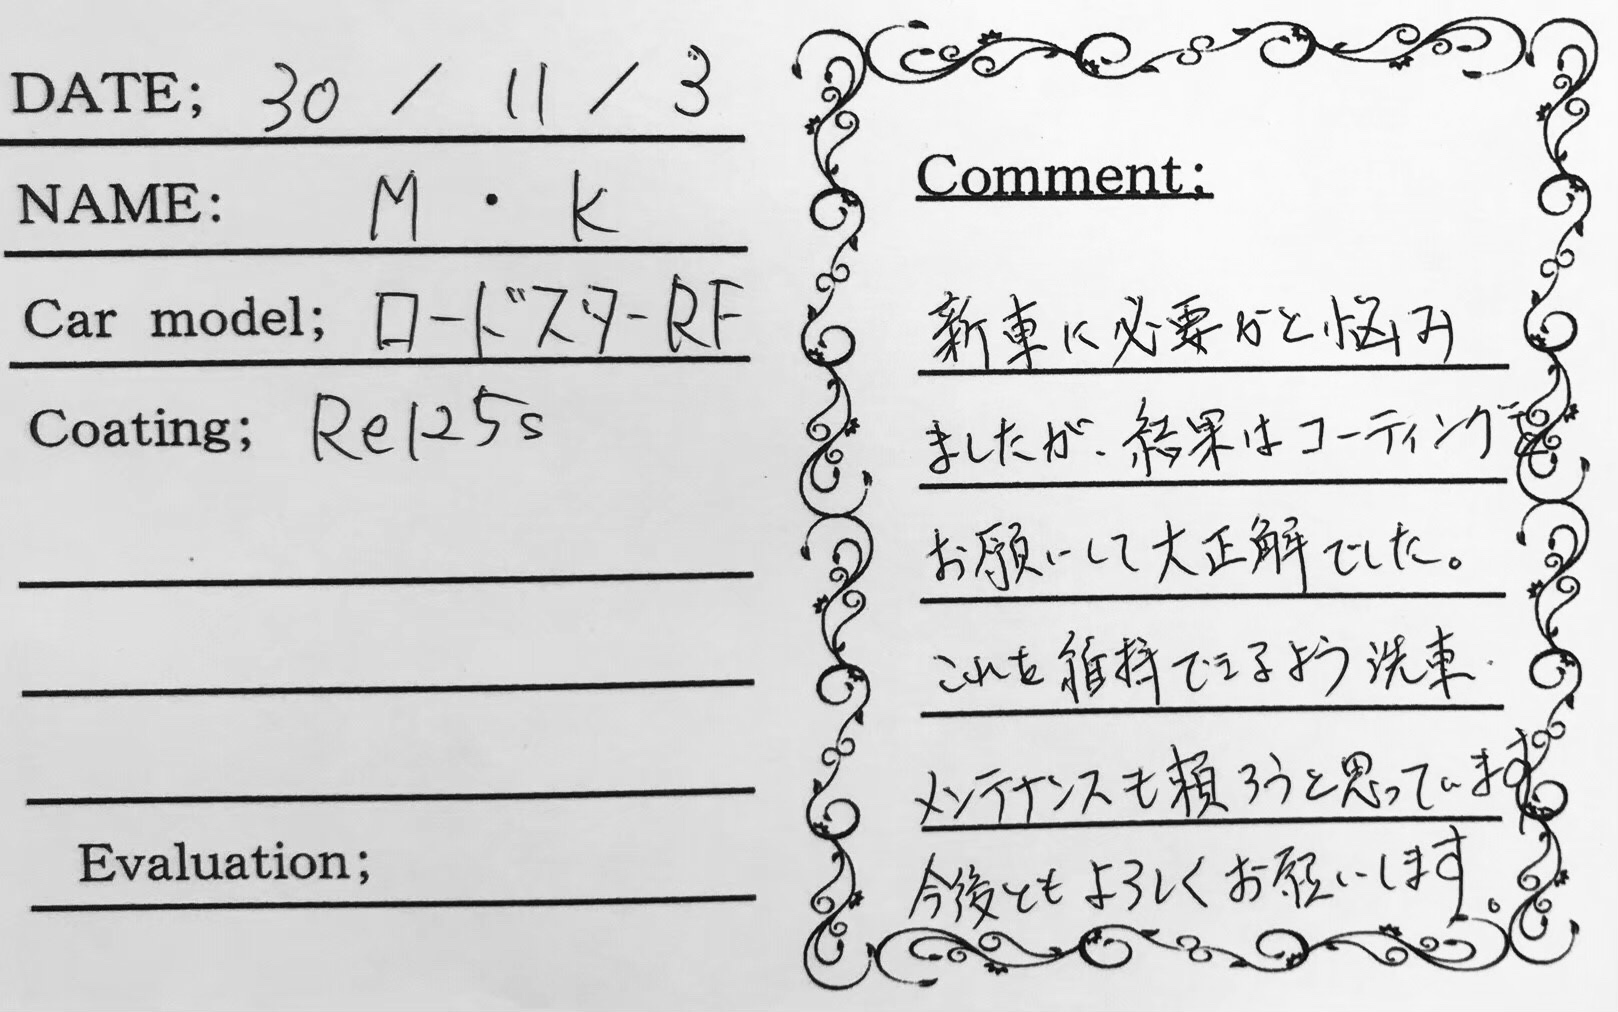 DATE; 30 / 11 / 3
NAME: M・K
Car model; ロードスターRF
Coating; Re125s
Evaluation;
Comment;
新車に必要かと悩み
ましたが、結果はコーティングを
お願いして大正解でした。
これを維持できるよう洗車
メンテナンスも頼ろうと思っています
今後ともよろしくお願いします。